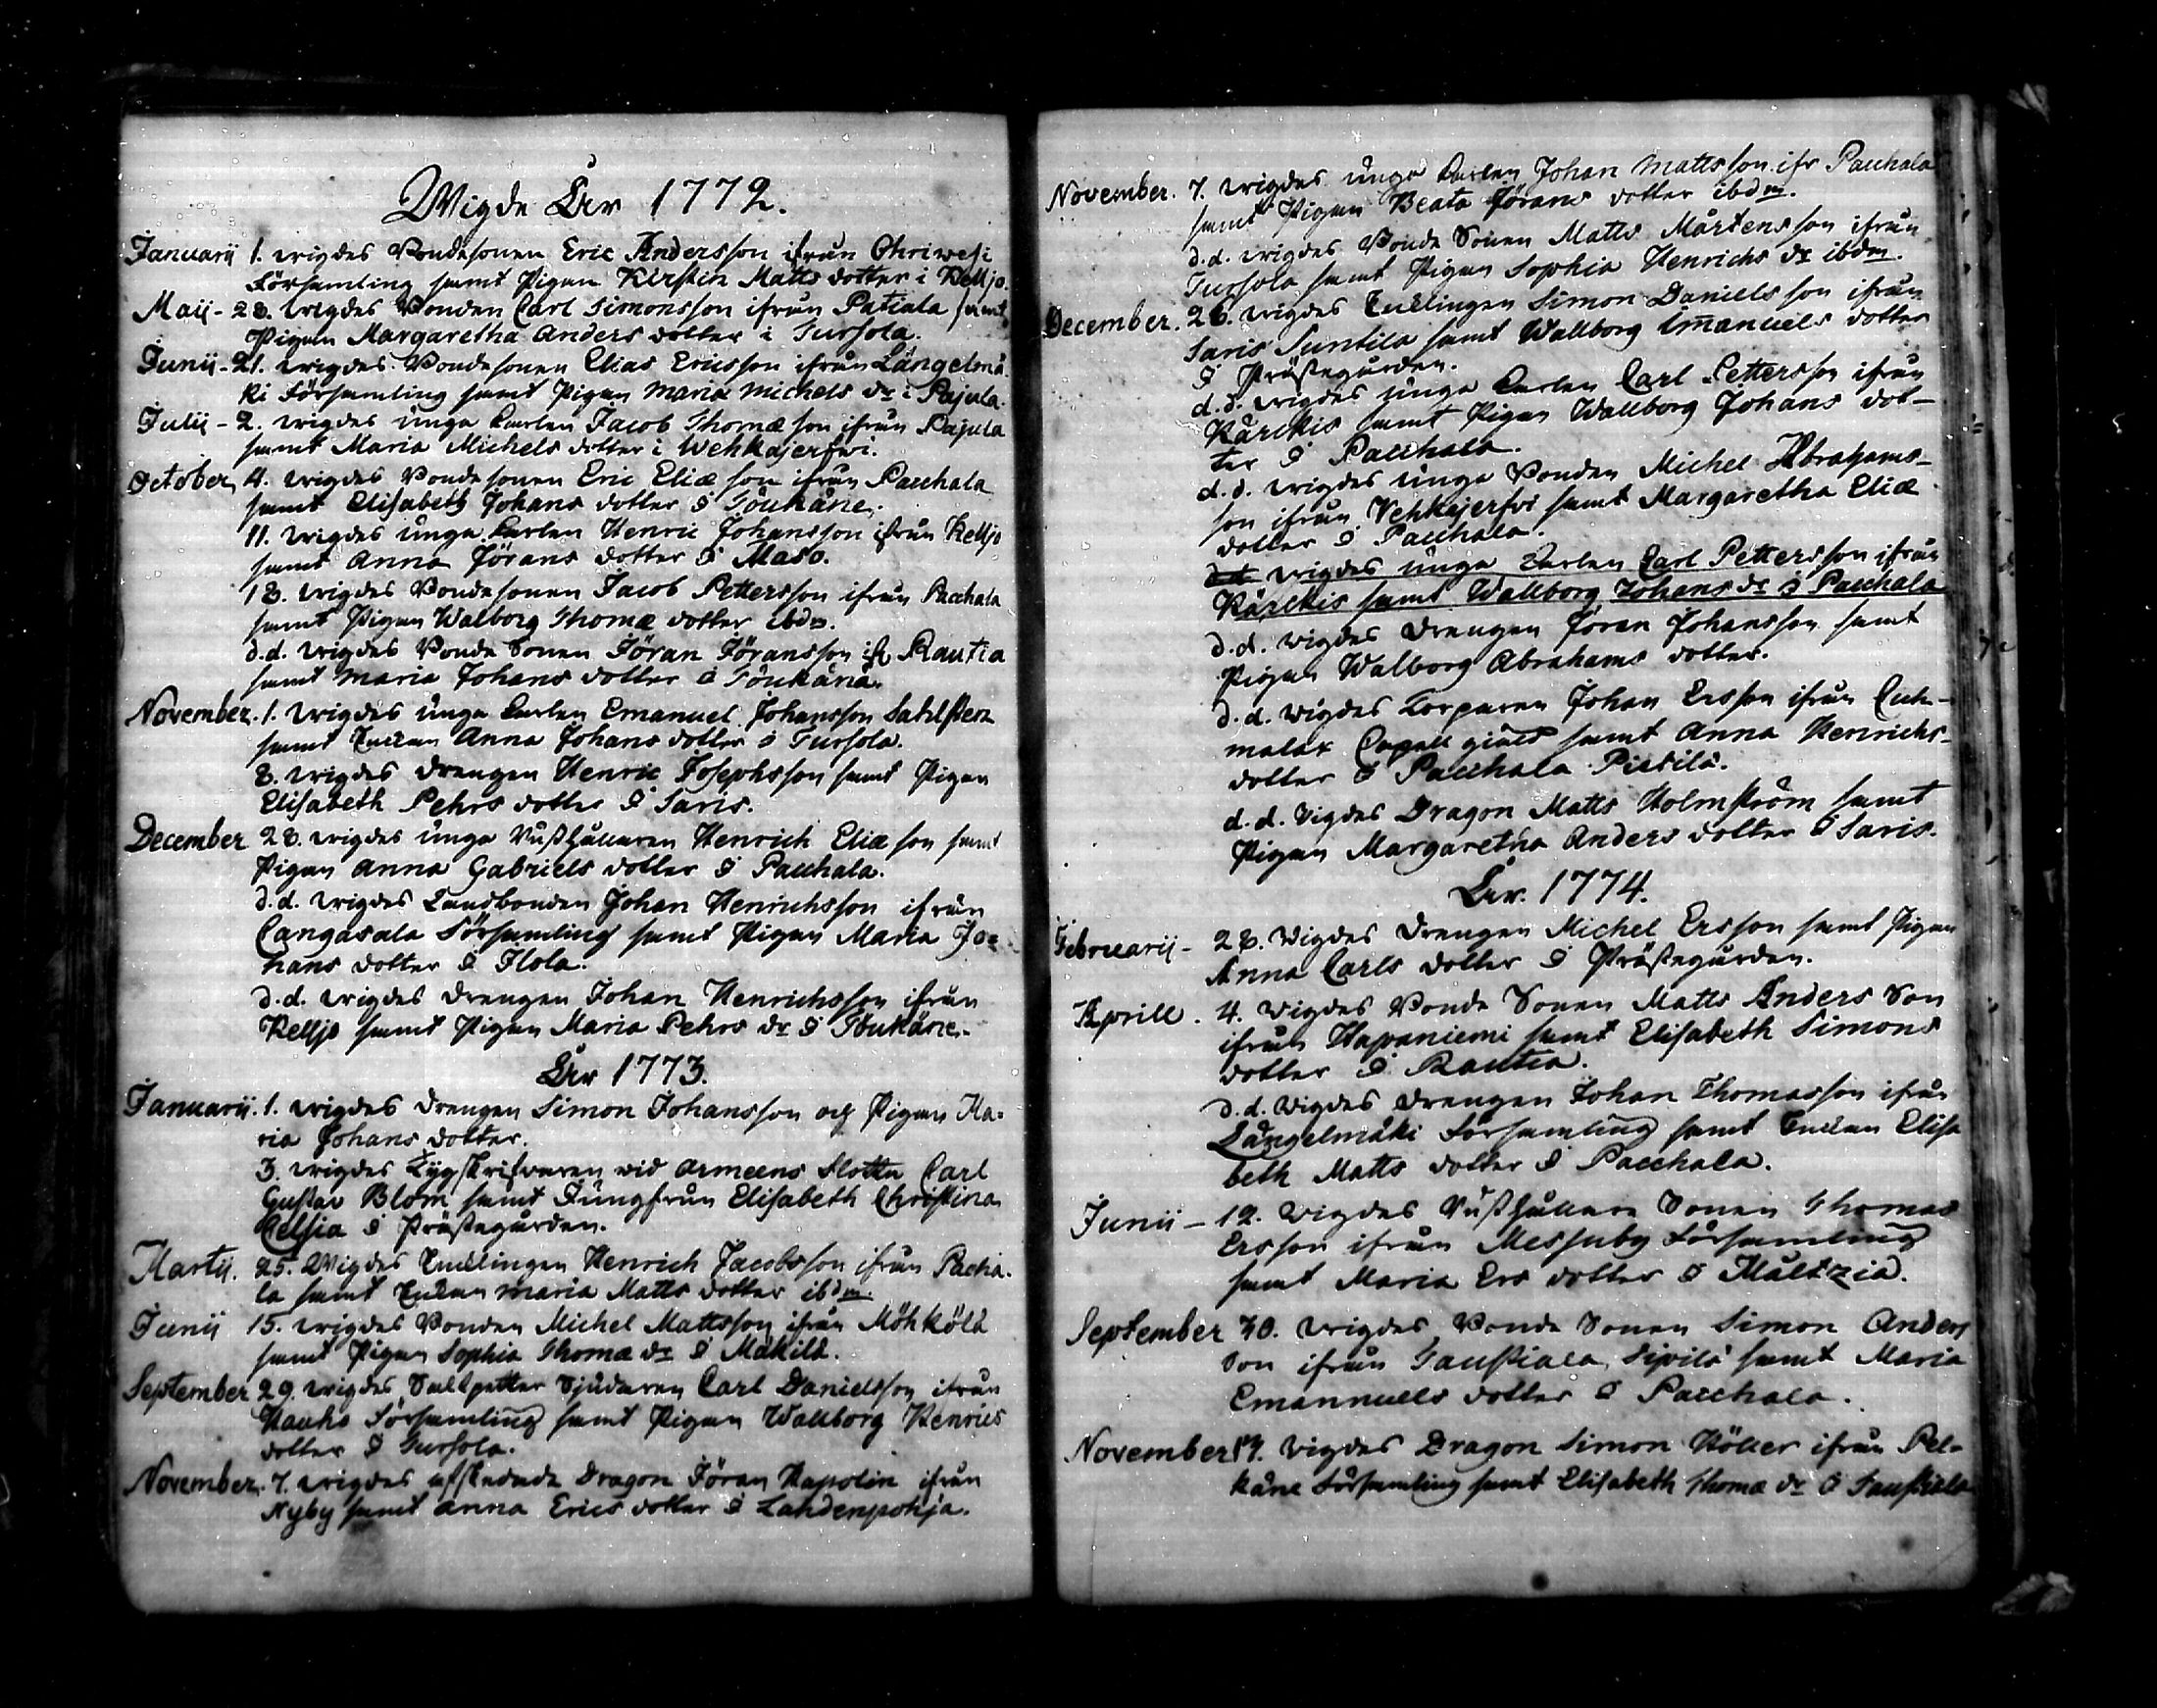 Wigde Åhr 1772.
Januarii 1. wigdes Bondesonen Eric Andersson ifrån Ohriwesi
Församling samt Pigan Kirstin Matts dotter i Kelljo.
Maij - 28. wigdes Bonden Carl Simonsson ifrån Patiala samt
Pigan Margaretha Anders dotter i Tursola.
Junii - 21. wigdes Bondesonen Elias Ericsson ifrån Längelmä
ki Församling samt Pigan Maria Michels dr i Pajula.
Julii - 2. wigdes unga Karlen Jacob Thomæ son ifrån Pajula
samt Maria Michels dotter i Wehkajerfwi.
October 4. wigdes Bondesonen Eric Eliæ son ifrån Pacchala
samt Elisabeth Johans dotter å Töukäne.
11. wigdes unga Karlen Henric Johansson ifrån Kelljo
samt Anna Jörans dotter å Maso.
18. wigdes Bondesonen Jacob Pettersson ifrån Pacchala
samt Pigan Walborg Thomæ dotter ibdm.
d.d. wigdes Bonde Sonen Jöran Jöransson ifr Rautia
samt Maria Johans dotter å Töukäna.
November. 1. wigdes unga Karlen Emanuel Johansson Sahlsten
samt Enkan Anna Johans dotter å Tursola.
8. wigdes drengen Henric Josephsson samt Pigan
Elisabeth Pehrs dotter å Saris.
December 28. wigdes unga Rusthållaren Henrich Eliæ son samt
Pigan Anna Gabriels dotter å Pacchala.
d.d. wigdes Landbonden Johan Henrichsson ifrån
Cangasala Församling samt Pigan Maria Jo=
hans dotter å Ilola.
d.d. wigdes drengen Johan Henrichsson ifrån
Kelljo samt Pigan Maria Pehrs dr å Töukäne.
Åhr 1773.
Januarii. 1. wigdes drengen Simon Johansson och Pigan Ma=
ria Johans dotter.
3. wigdes Tygskrifwaren wid Armeens Flotta Carl
Gustav Blom samt Jungfrun Elisabeth Christina
Celsia å Prästegården.
Martii. 25. Wigdes Enklingen Henrich Jacobsson ifrån Pacha=
la samt Enkan Maria Matts dotter ibdm.
Junii 15. wigdes Bonden Michel Mattsson ifrån Möhkölä
samt Pigan Sophia Thomæ dr å Mäkilä.
September 29. wigdes Saltpetter Sjudaren Carl Danielsson ifrån
Hauho Församling samt Pigan Wallborg Henrics
dotter å Tursola.
November. 7. wigdes afskedade Dragon Jöran Hapolin ifrån
Nyby samt Anna Erics dotter å Lahdenpohja.
November. 7. wigdes unga Karlen Johan Mattsson ifr Pacchala
samt Pigan Beata Jörans dotter ibdm.
d.d. wigdes Bonde Sonen Matts Mårtensson ifrån
Tursola samt Pigan Sophia Henrichs dr ibdm.
December. 26. wigdes Enklingen Simon Danielsson ifrån
Saris Suntila samt Wallborg Emanuels dotter
å Prästegården.
d.d. wigdes unga Karlen Carl Pettersson ifrån
Kärckis samt Pigan Wallborg Johans dot-
ter å Pacchala.
d.d. wigdes unga Bonden Michel Abrahams-
son ifrån Vehkajerfvi samt Margaretha Eliæ
dotter å Pacchala.
d.d. wigdes unga Karlen Carl Pettersson ifrån
Kärckis samt Wallborg Johans dr å Pacchala
d.d. wigdes drengen Jöran Johansson samt
Pigan Walborg Abrahams dotter.
d.d. wigdes Torparen Johan Ersson ifrån Cuh-
malax Capell giäld samt Anna Henrichs-
dotter å Pacchala Pirtilä.
d.d. Vigdes Dragon Matts Holmström samt
Pigan Margaretha Anders dotter å Saris.
Åhr. 1774.
Februarii - 28. Wigdes drengen Michel Ersson samt Pigan
Anna Carls dotter å Prästegården.
Aprill. 4. Wigdes Bonde Sonen Matts Anders Son
ifrån Hapaniemi samt Elisabeth Simons
dotter å Rautia.
d.d. Wigdes drengen Johan Thomasson ifrån
Längelmäki Församling samt Enkan Elisa
beth Matts dotter å Pacchala.
Junii - 12. Wigdes Rusthållare Sonen Thomas
Ersson ifrån Messuby Församling
samt Maria Ers dotter å Mältzia.
September 30. wigdes Bonde Sonen Simon Anders
Son ifrån Taustiala Sipilä samt Maria
Emannuels dotter å Pacchala.
November 17. Vigdes Dragon Simon Höller ifrån Pel-
käne Församling samt Elisabeth Thomæ dr å Taustiala